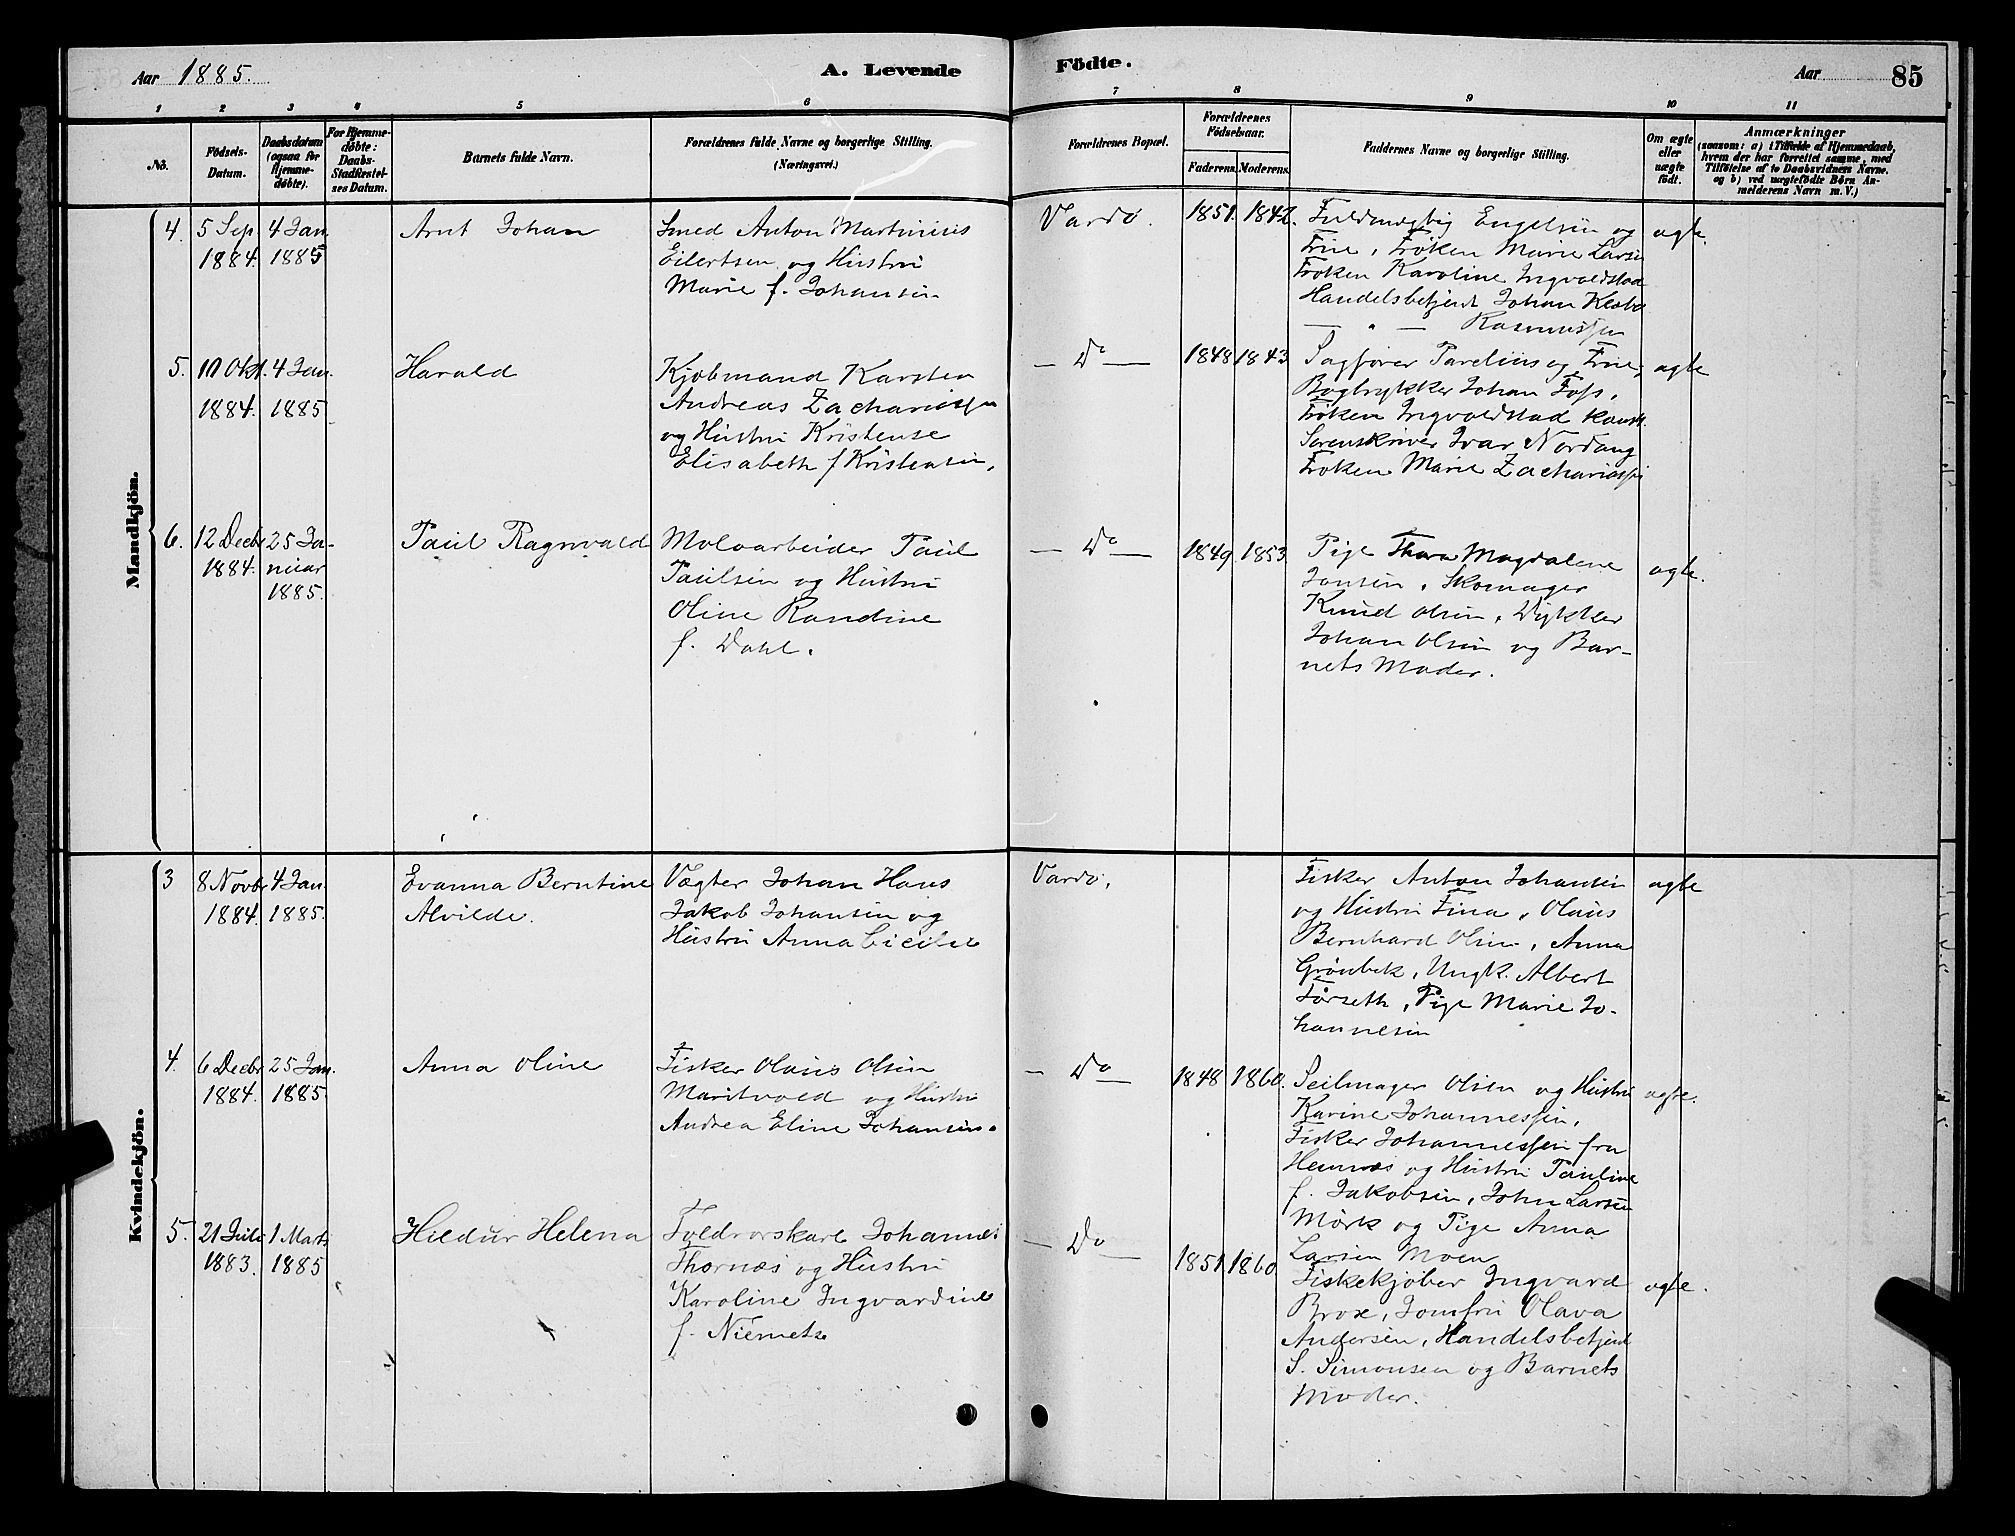 Aar 1885.
A. Levende
Födte.
Aar
85
1
2
3
4
5
6
7
8
9
10
11
No.
Födsels-
Datum.
Daabsdatum
(ogsaa for
Hjemme-
döbte).
For Hjemme-
døbte:
Daabs-
Stadfæstel-
ses Datum.
Barnets fulde Navn.
Forældrenes fulde Navne og borgerlige Stilling.
(Næringsvei.)
Forældrenes Bopæl.
Forældrenes
Födselsaar.
Faderens.
Moderens.
Faddernes Navne og borgerlige Stilling.
Om ægte
eller
uægte
født.
Anmærkninger
(saasom: a) i Tilfælde af Hjemmedaab,
hvem der har forrettet samme, med
Tilföielse af to Daabsvidners Navne.
og b) ved uægtefödte Börn An-
melderens Navn m. V.)
Mandkjön.
4.
5 Sep
1884.
4 Jan.
1885
Arnt Johan
Smed Anton Martinius
Eilertsen og Hustru
Marie f. Johansen.
Vardø.
1851.
1842.
Fuldmægtig Engelsen og
Frue, Frøken Marie Larsen
Frøken Karoline Ingvoldstad
Handelsbetjent Johan
— " — Rasmussen
ægte.
5.
1884.
4 Jan.
1885
Harald
Kjøbmand Karsten
Andreas Zachariassen
og Hustru Kristense
Elisabeth f Kristensen.
— Do —
1848
1843
Sagfører Parelius og Frue,
Bogtrykker Johan Foss,
Frøken Ingvoldstad Konst.
Sorenskriver Ivar Nordang
Frøken Marie Zachariassen
ægte
6.
12 Decbr
1884.
25 Ja-
nuar
1885.
Paul Ragnvald
Moloarbeider Paul
Paulsen og Hustru
Oline Randine
f. Dahl.
— Do —
1849
1853
Pige Thora Magdalene
Jansen, Skomager
Knud Olsen, Dykker
Johan Olsen og Bar-
nets Moder.
ægte.
Kvindekjön.
3
8 Novbr
1884.
4 Jan
1885.
Evanna Berntine
Alvilde.
Vægter Johan Hans
Jakob Johansen og
Hustru Anna Cecilie
Vardø.
Fisker Anton Johansen
og Hustru Fina, Olaus
Bernhard Olsen, Anna
Grønbek, Ungk. Albert
Forseth, Pige Marie Jo-
hannesen
ægte
4.
6 Decbr
1884.
25 Jan.
1885.
Anna Oline
Fisker Olaus Olsen
Maritvold og Hustru
Andrea Eline Johansen.
— Do —
1848
1860.
Seilmager Olsen og Hustru
Karine Johannessen,
Fisker Johannessen fra
Hemnæs og Hustru Pauline
f. Jakobsen, John Larsen
Mörk og Pige Anna
Larsen Moen
ægte.
5.
21 Juli
1883.
1 Marts
1885
Hildur Helena
Toldrorskarl Johannes
Thornæs og Hustru
Karoline Ingvardine
f. Niemets
— Do —
1851
1860
Fiskekjøber Ingvard
Brox, Jomfru Olava
Andersen, Handelsbetjent
S. Simonsen og Barnets
Moder.
ægte.